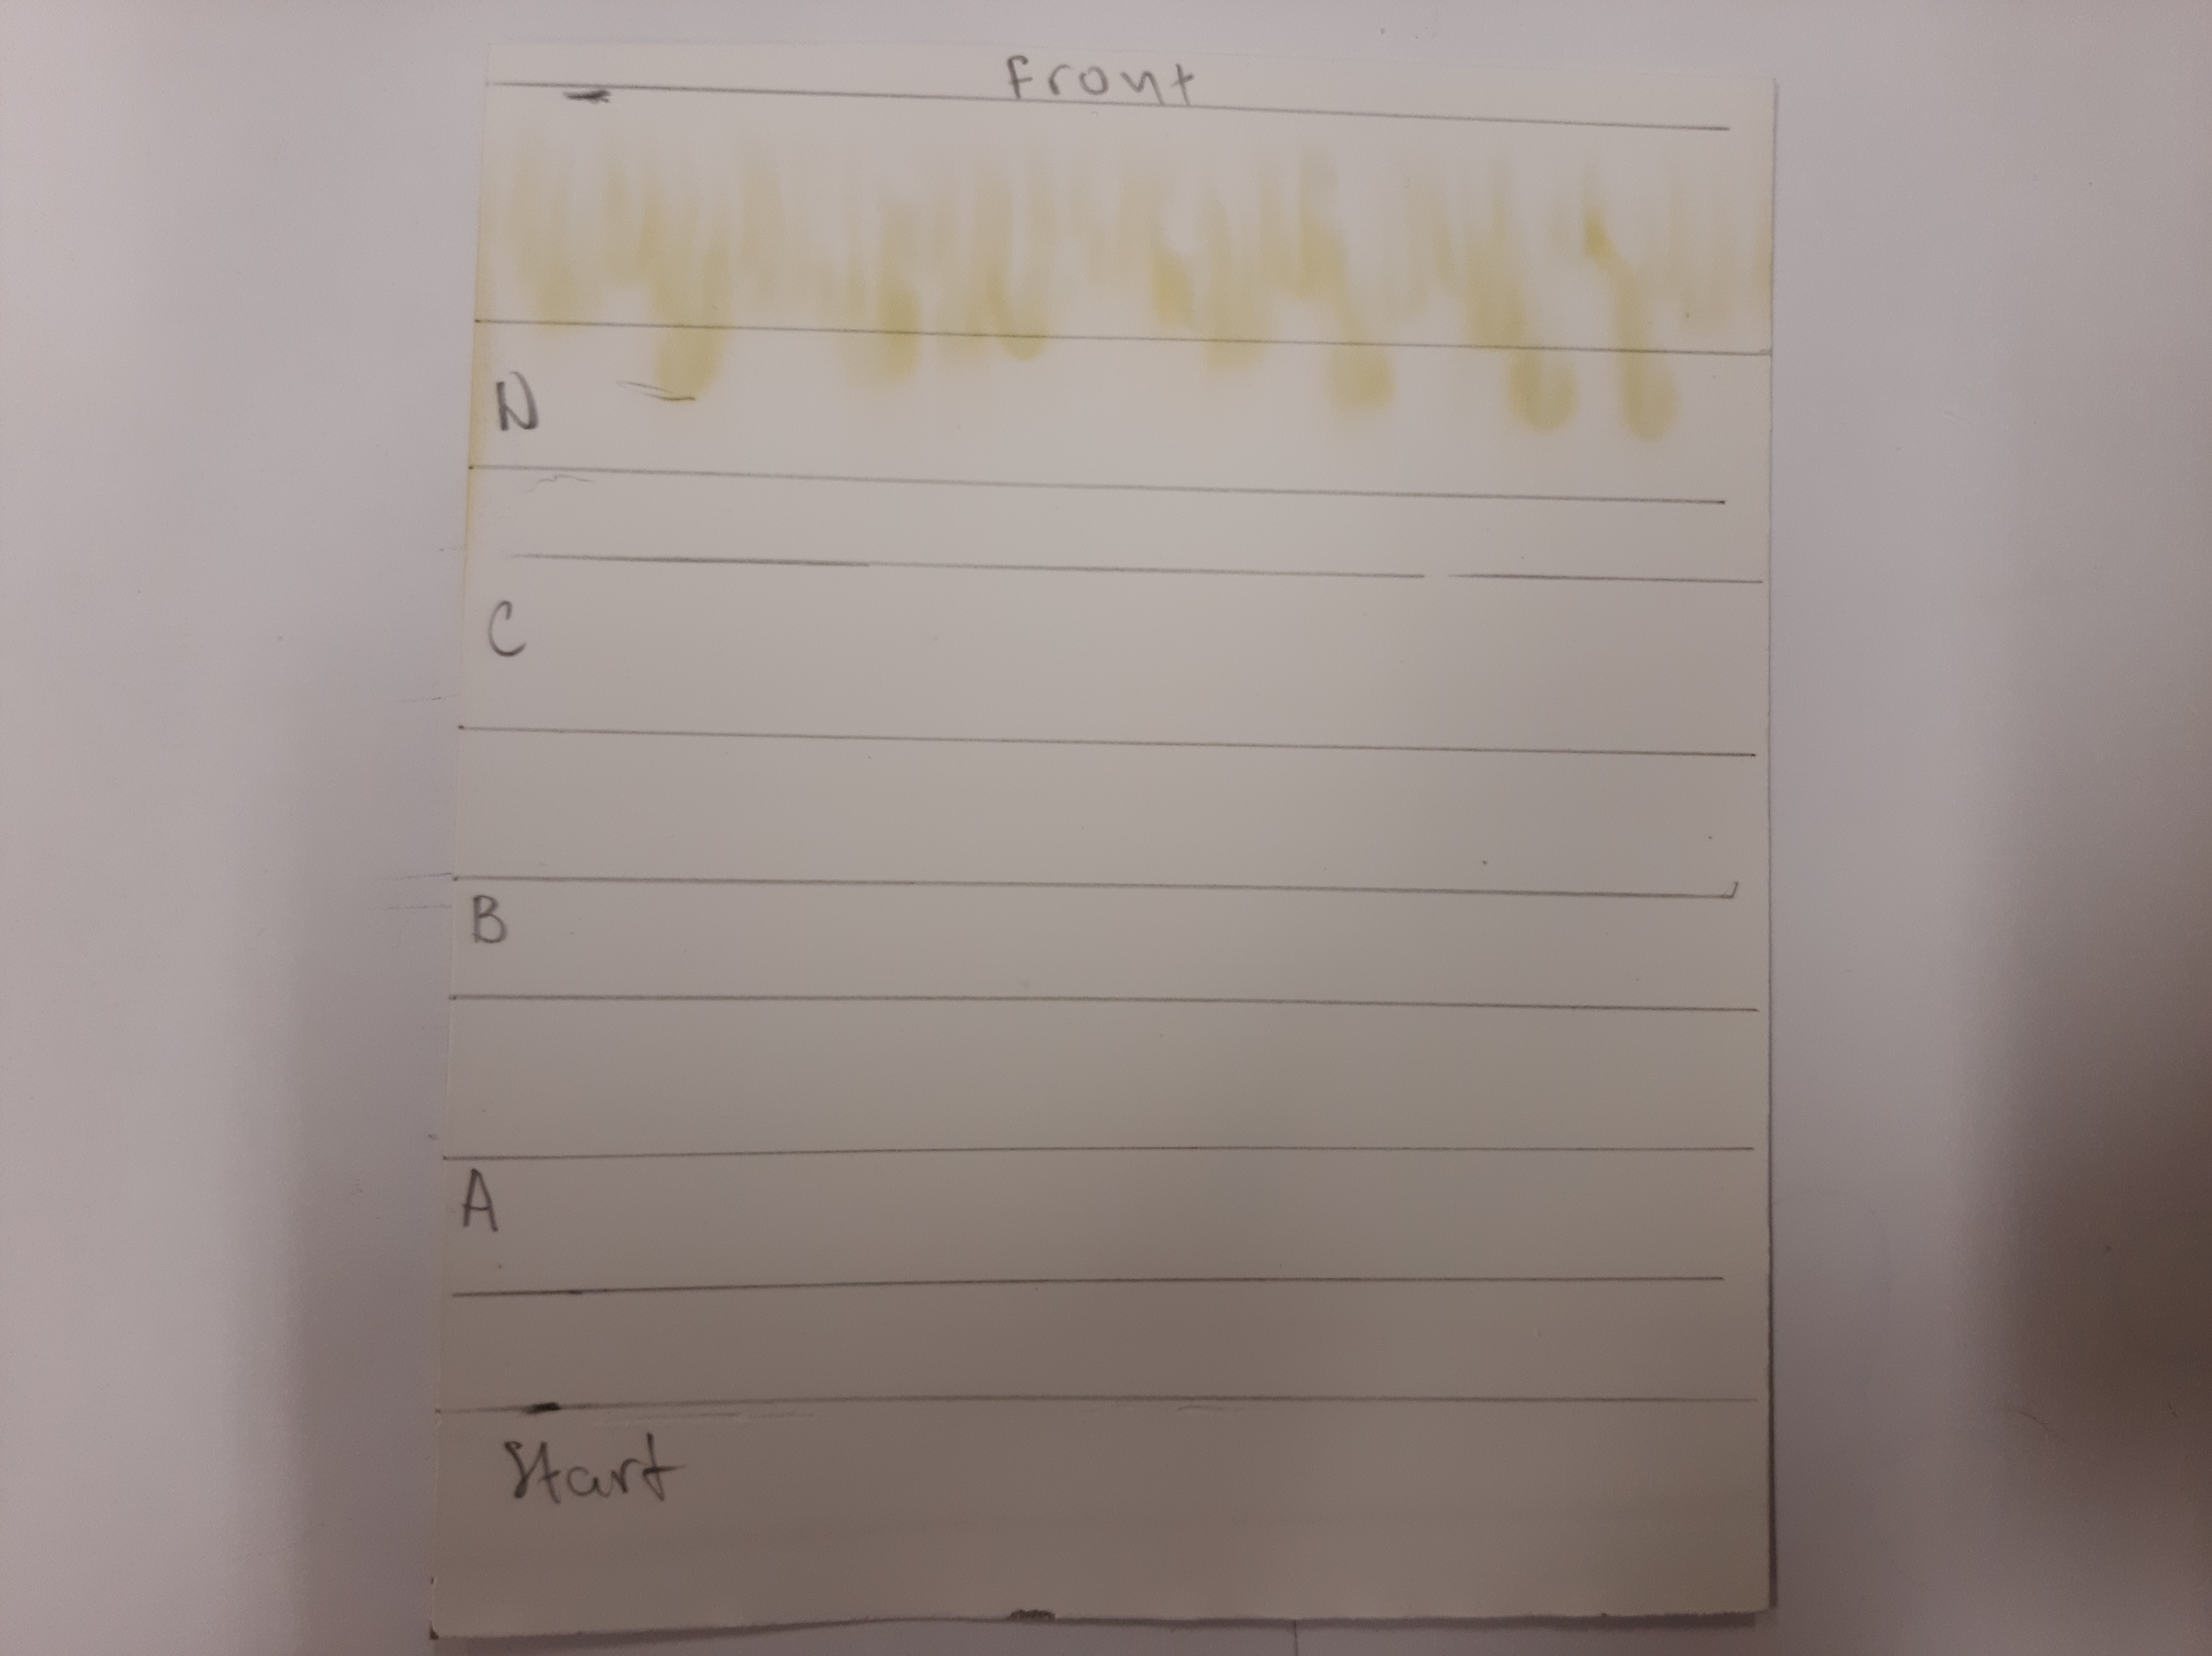 Front
D
C
B
A
Start